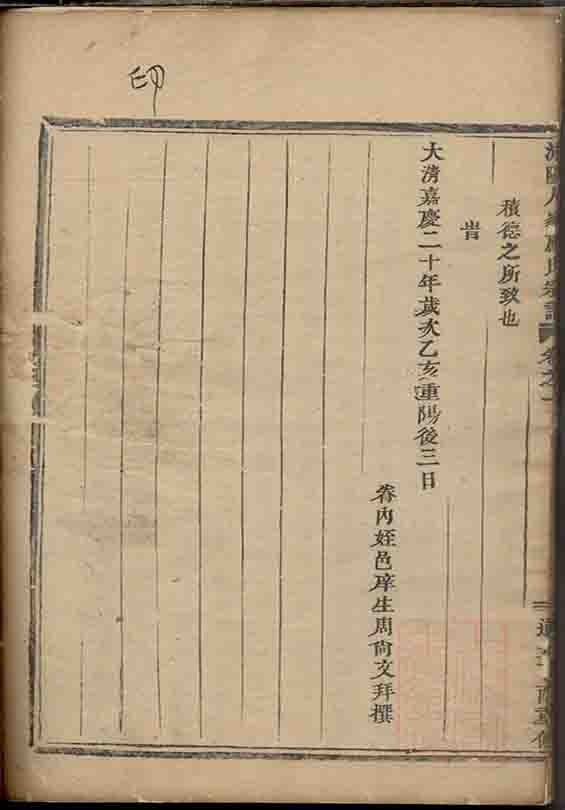 印
積德之所致也
旹
大清嘉慶二十年歲次乙亥重陽後三日
眷內姪邑庠生周尙文拜撰